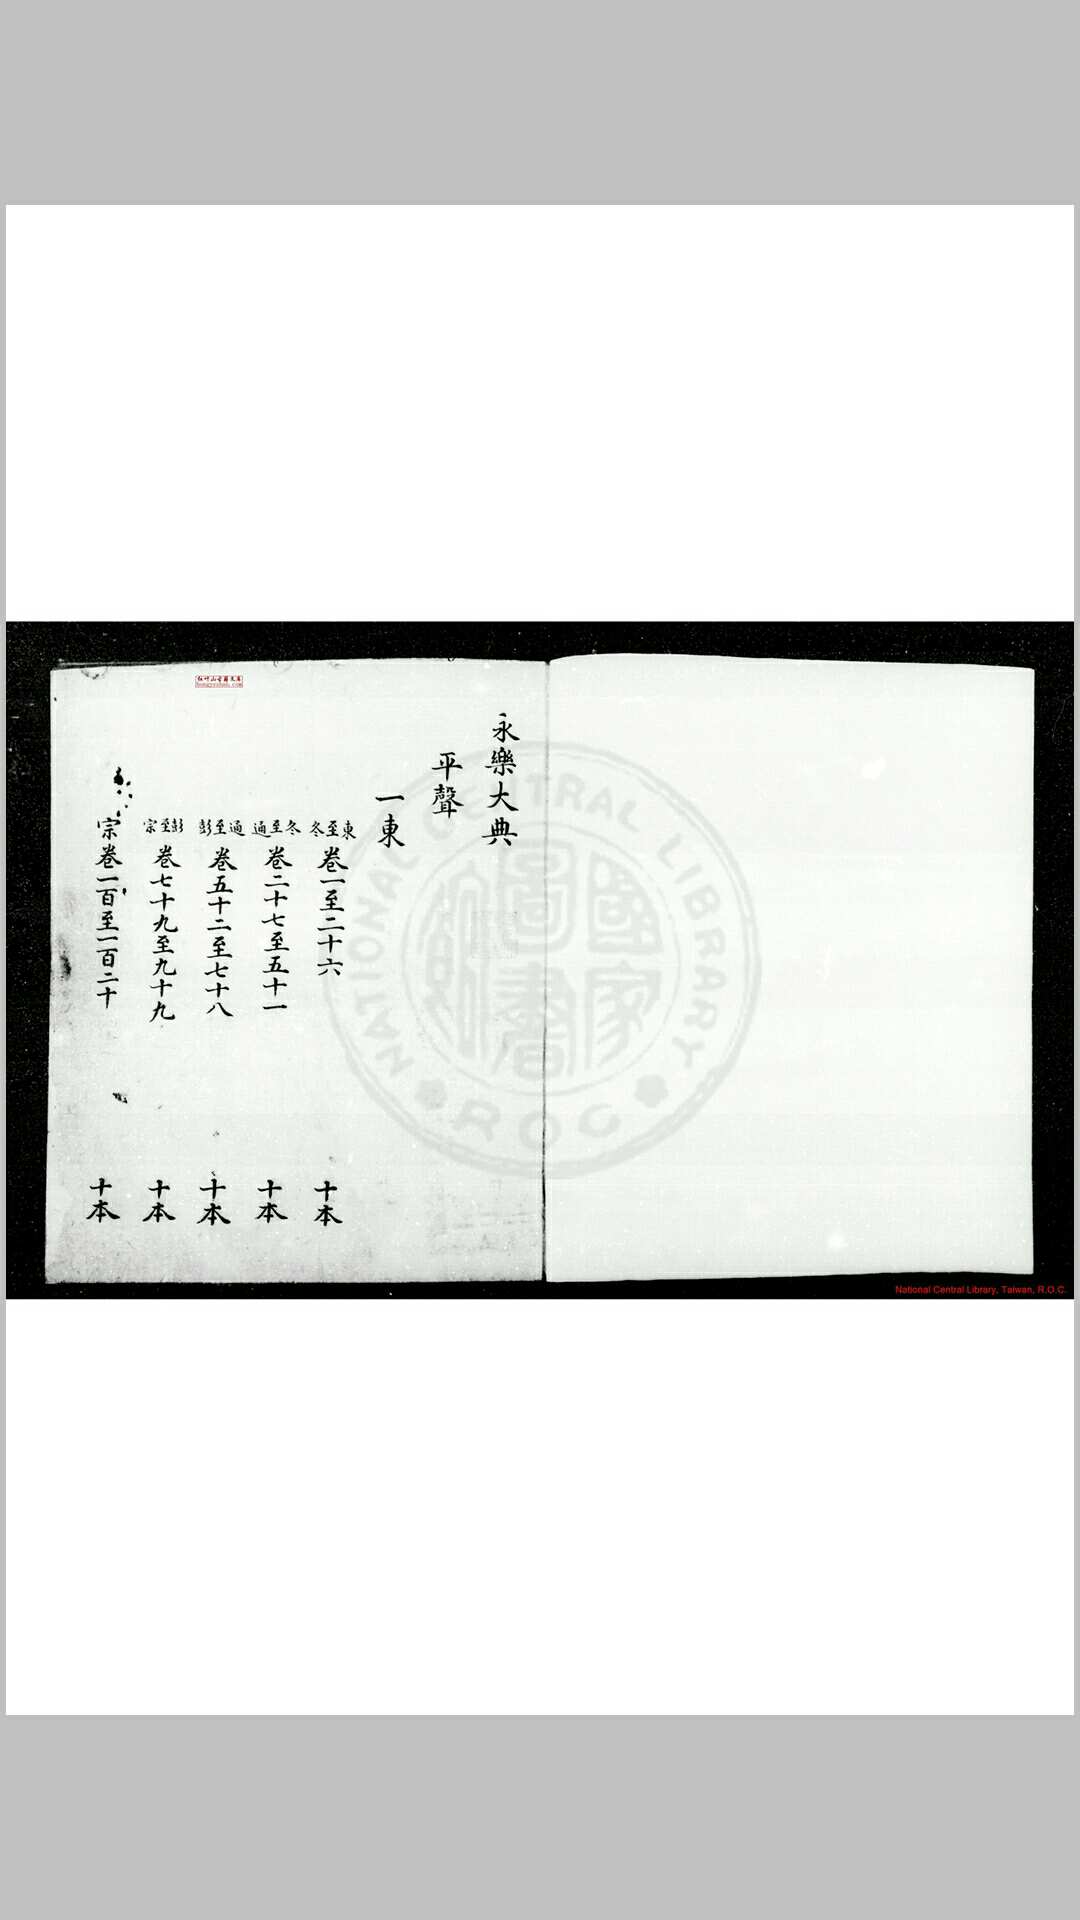 永樂大典
平聲
一東
東至冬 卷一至二十六 十本
冬至通 卷二十七至五十一 十本
通至彭 卷五十二至七十八 十本
彭至宗 卷七十九至九十九 十本
宗 卷一百至一百二十 十本
紅叶山古籍文庫
hongyeshan.com
NATIONAL CENTRAL LIBRARY
R.O.C
國家圖書館
National Central Library, Taiwan, R.O.C.